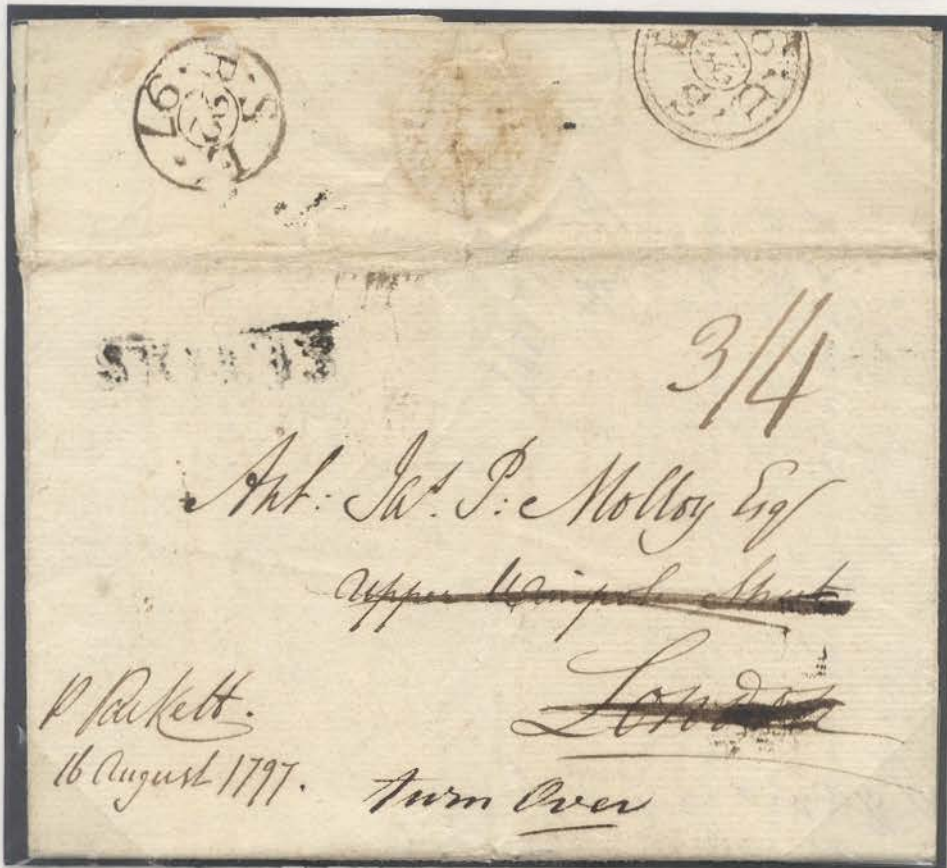 97
3/4
Ant: Jas. P: Molloy Esq
Upper Wimpole Street
London
P Packett.
16 August 1797.
turn Over